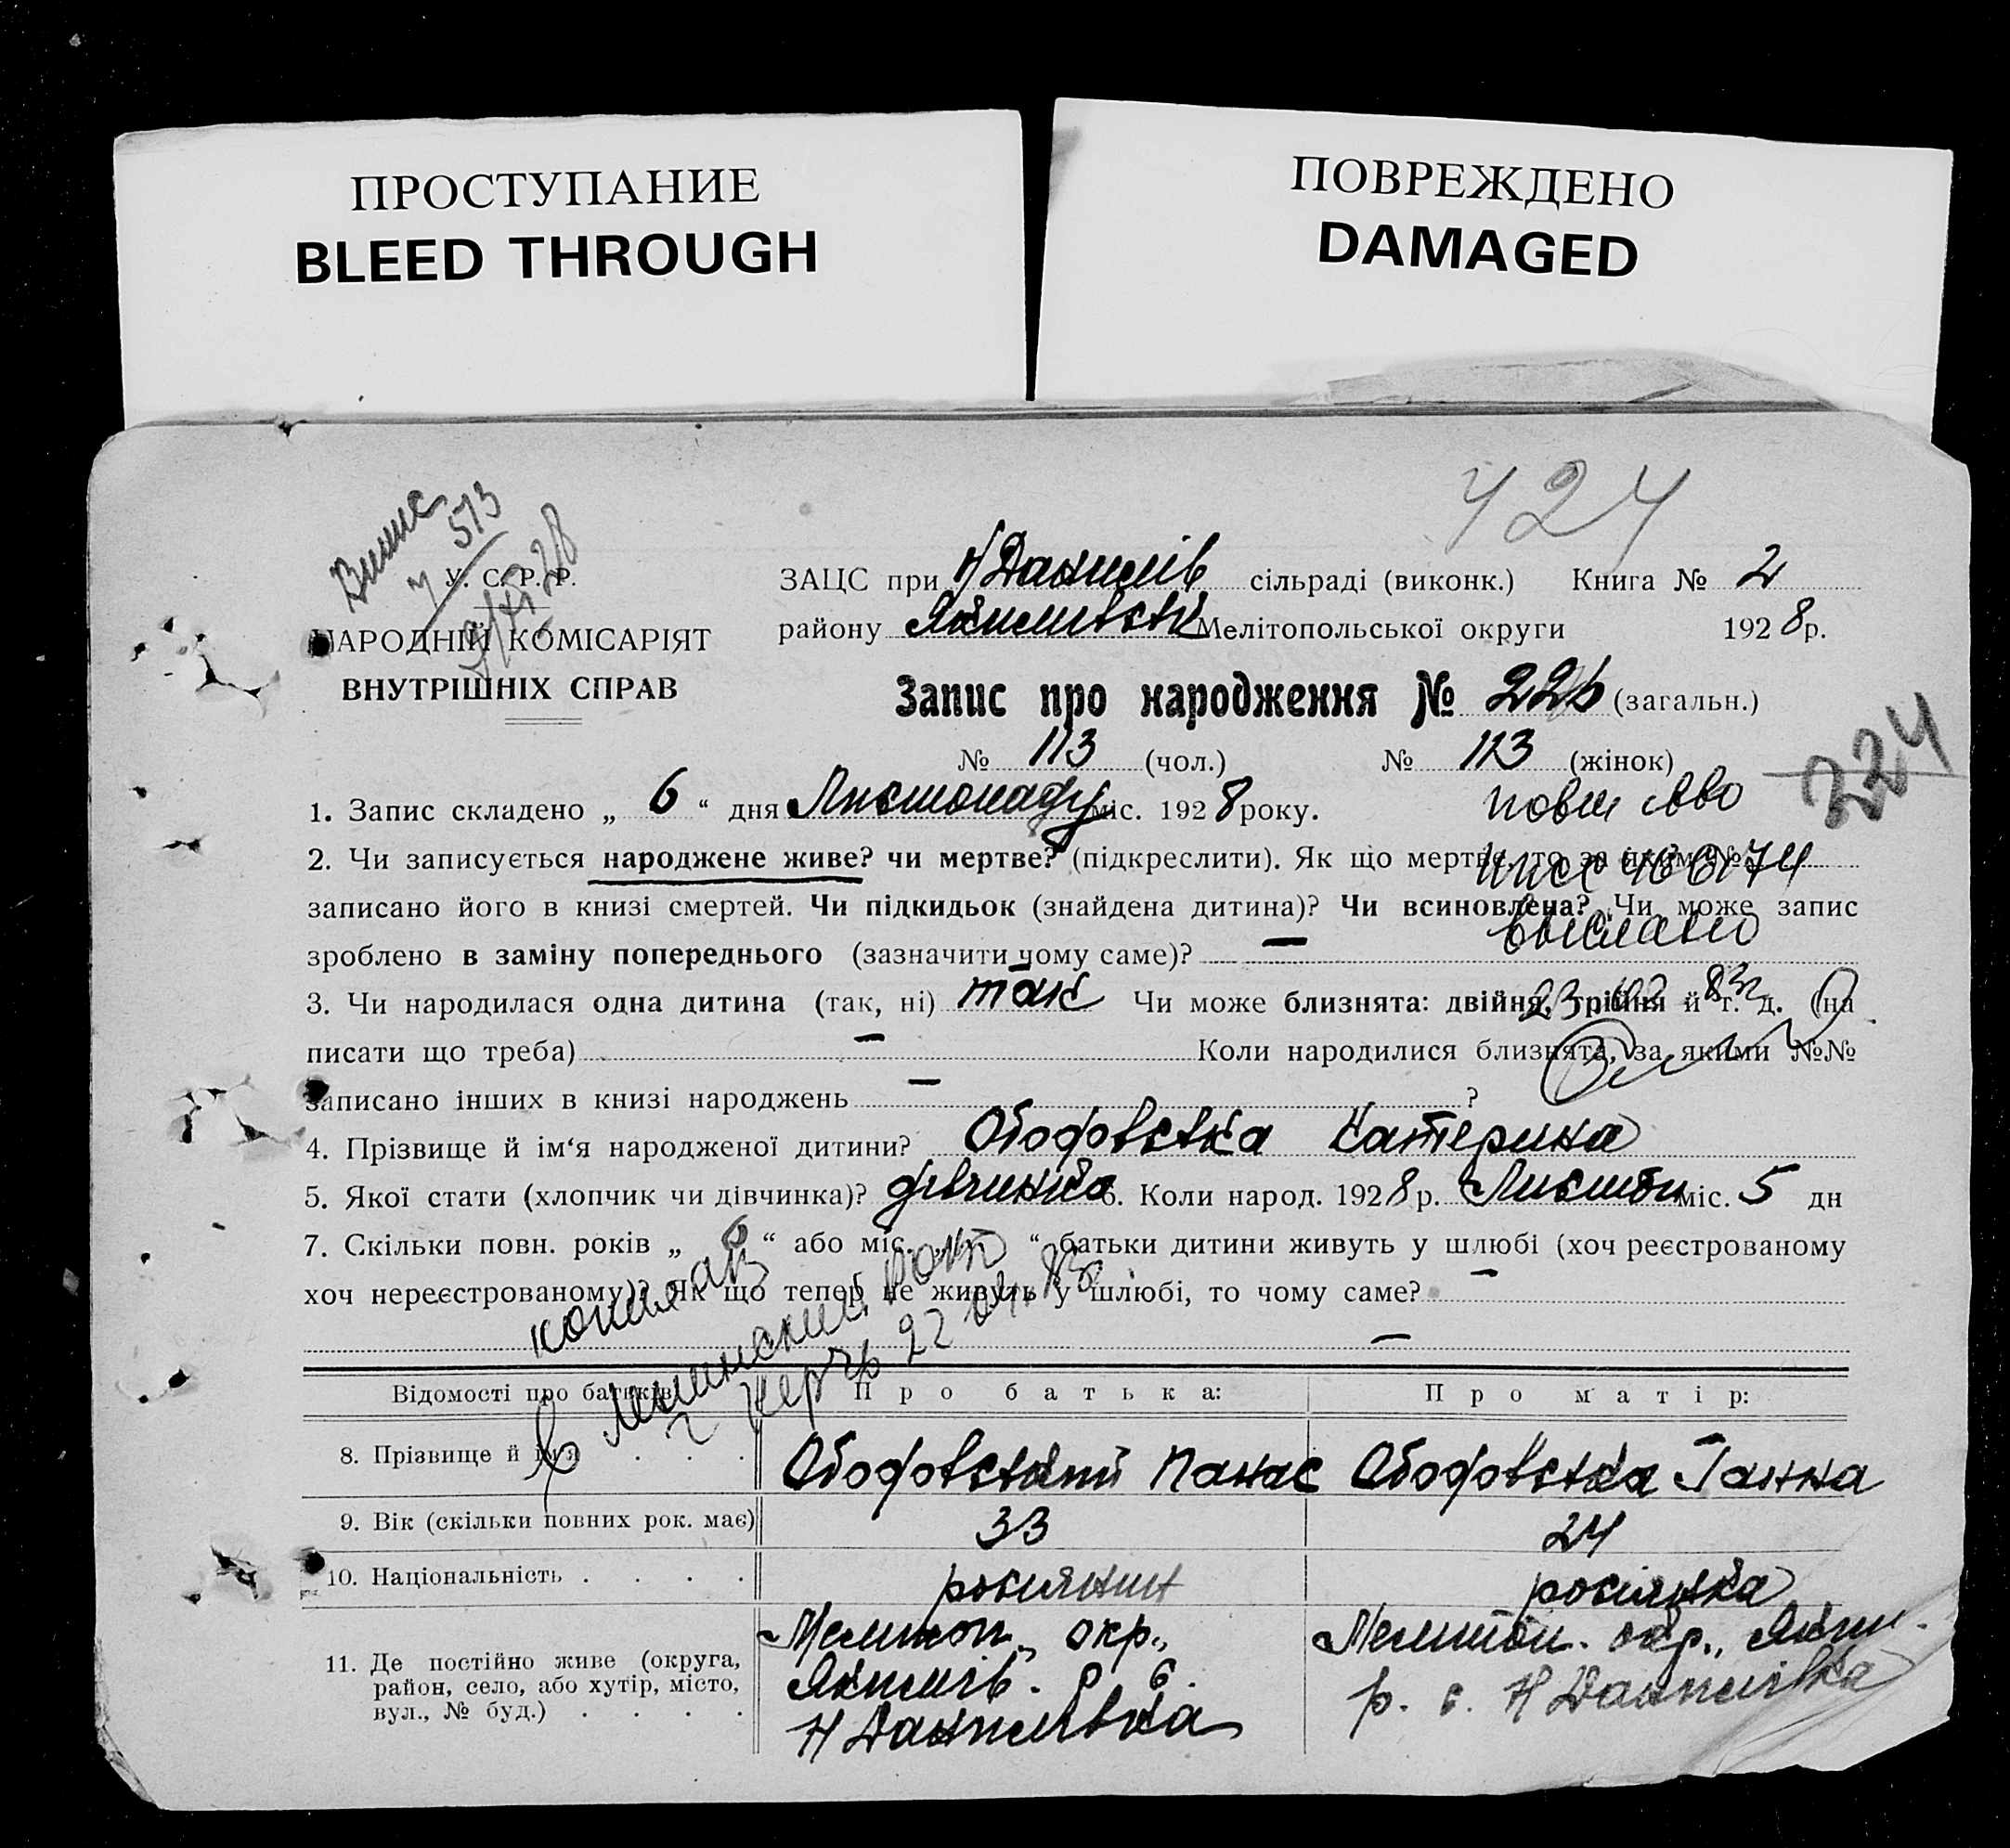 ПРОСТУПАНИЕ
BLEED THROUGH
ПОВРЕЖДЕНО
DAMAGED
424
513
28
У. С. Р. Р.
НАРОДНІЙ КОМІСАРІЯТ
ВНУТРІШНІХ СПРАВ
ЗАЦС при Н Данилів сільраді (виконк.) Книга № 2
району Якимівськ Мелітопольської округи 1928 р.
Запис про народження № 226 (загальн.)
№ 113 (чол.) № 113 (жінок)
224
1. Запис складено „ 6 “ дня Листопаду міс. 1928 року.
повт
2. Чи записується народжене живе? чи мертве? (підкреслити). Як що мертве, то за яким №
записано його в книзі смертей. Чи підкидьок (знайдена дитина)? Чи всиновлена? Чи може запис
выслано
зроблено в заміну попереднього (зазначити чому саме)? —
3. Чи народилася одна дитина (так, ні) так Чи може близнята: двійня, трійня й т. д. (на
писати що треба) — Коли народилися близнята, за якими №№
записано інших в книзі народжень — ?
4. Прізвище й ім‘я народженої дитини? Ободовська Катерина
5. Якої стати (хлопчик чи дівчинка)? дівчинка 6. Коли народ. 1928 р. Листоп міс. 5 дн
7. Скільки повн. років „ 6 “ або міс. „ “ батьки дитини живуть у шлюбі (хоч реєстрованому
хоч нереєстрованому)? Як що тепер не живуть у шлюбі, то чому саме? —
—
в Ленинский
г Керчь 22
Відомості про батьків Про батька: Про матір:
8. Прізвище й ім‘я . . . Ободовський Панас Ободовська Ганна
9. Вік (скільки повних рок. має) 33 24
10. Національність . . . . росіянин росіянка
11. Де постійно живе (округа, район, село, або хутір, місто, вул., № буд.) . . . .
Мелитоп. окр.,
Якимів. р с.
Н Данилівка
Мелитоп. окр., Яким.
р. с. Н Данилівка